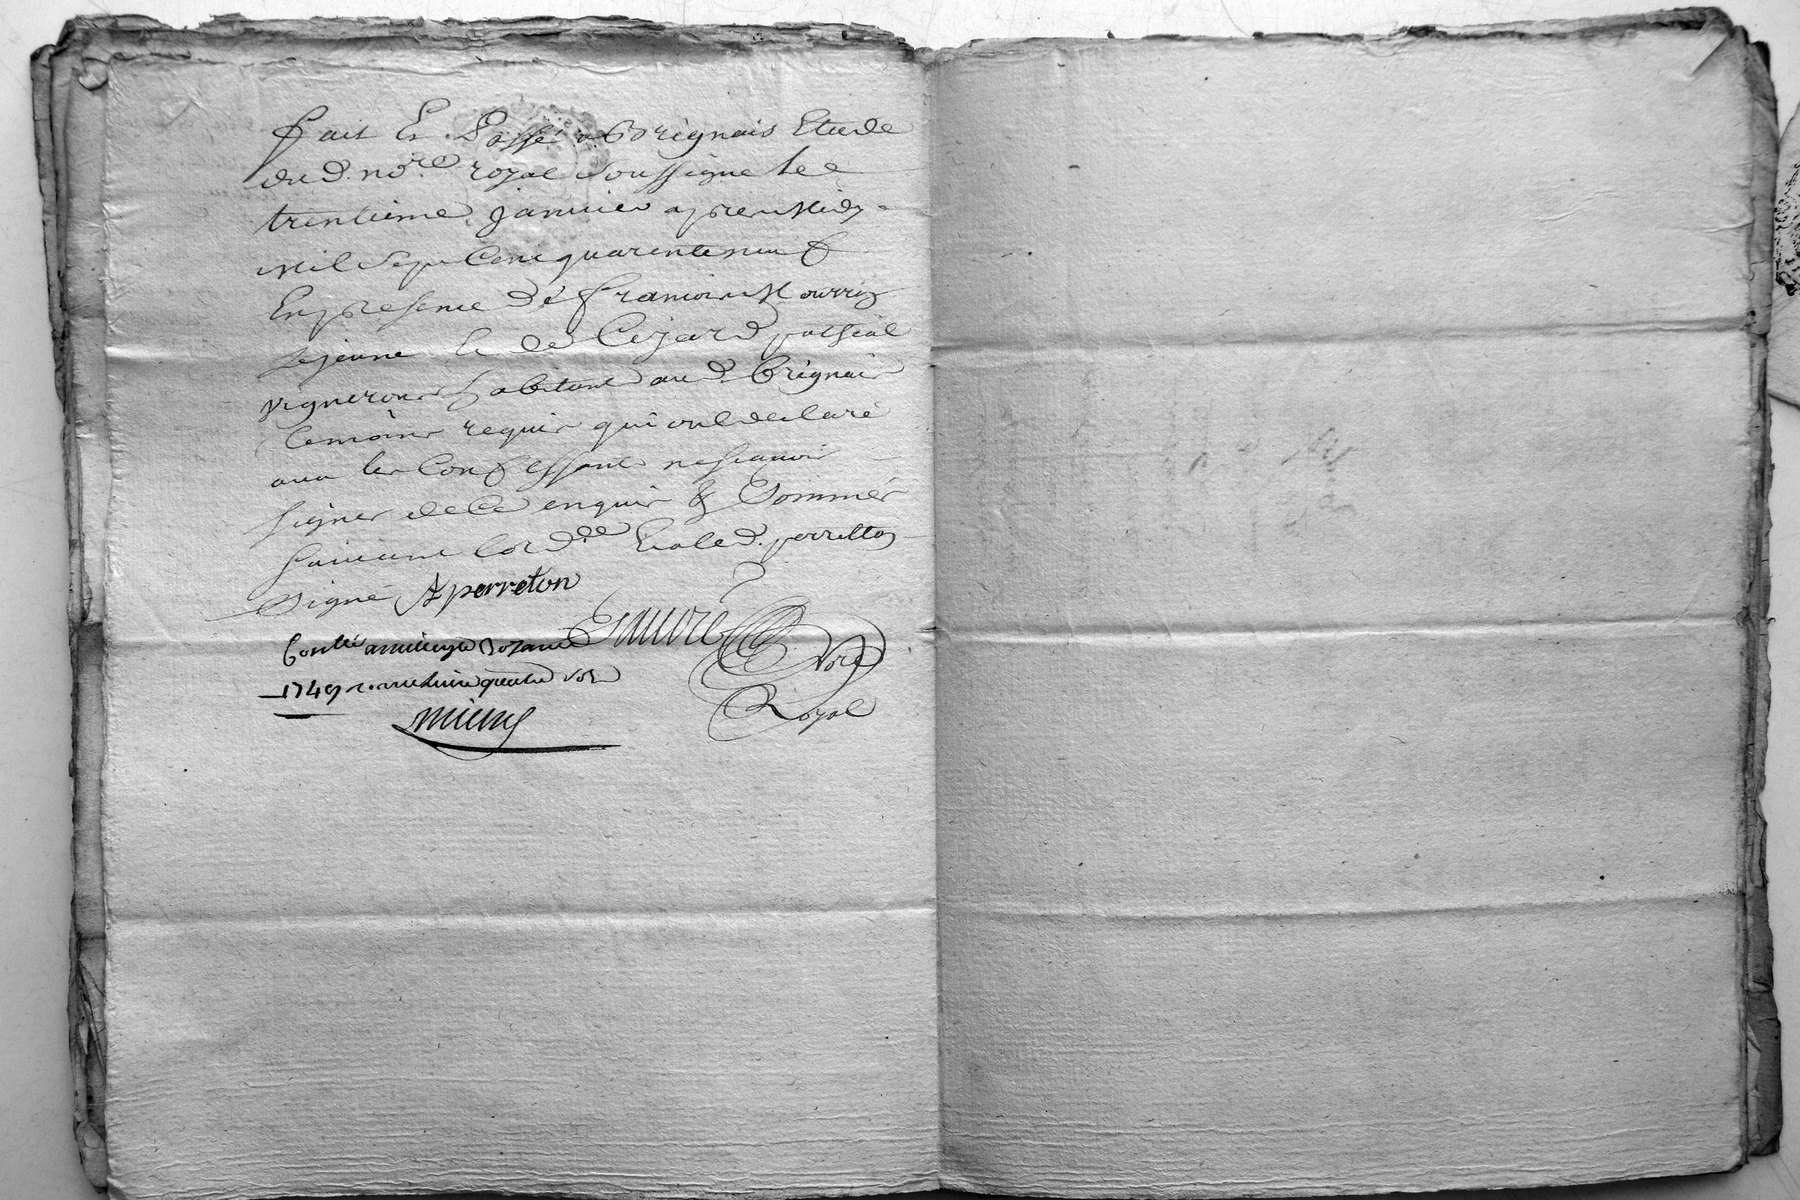 fait Et Passé a Brignais Etude
du d. no.re royal soussigné le
trentieme janvier apres midy
mil sept cent quarente neuf
En presence de francois
le jeune Et de pascal
vignerons habitant aud. Brignais
temoins requis qui ont declaré
avec les Confessants ne scavoir
signer de ce enquis & Sommés
suivant lord.ce Et a led. perretton
signé A perreton
Controllé
1749 quatre sols
Royal